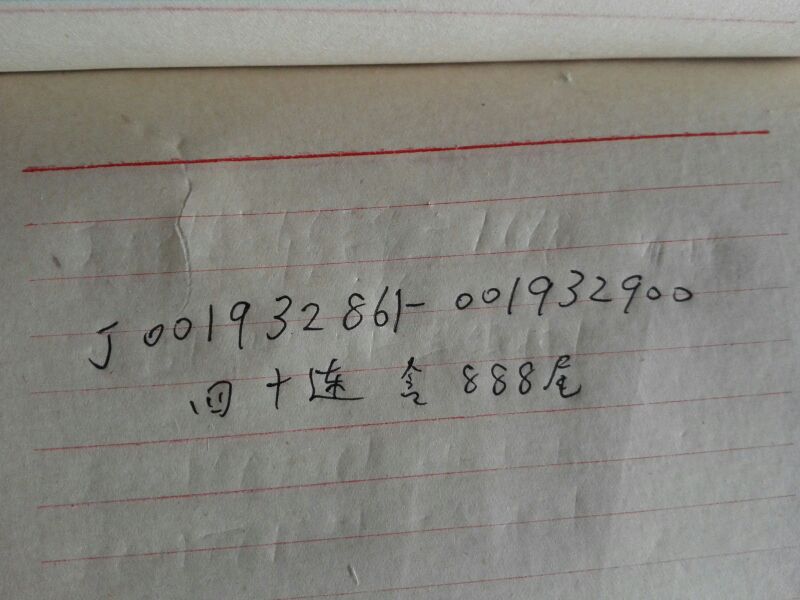 J001932861-001932900
四十连含888尾